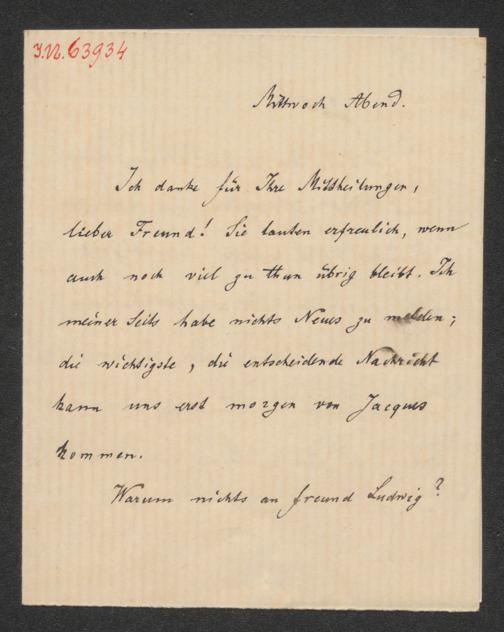 I.N. 63934
Mittwoch Abend.
Ich danke für Ihre Mittheilungen,
lieber Freund! Sie lauten erfreulich, wenn
auch noch viel zu thun übrig bleibt. Ich
meiner Seits habe nichts Neues zu melden;
die wichtigste, die entscheidende Nachricht
kann uns erst morgen von Jacques
kommen.
Warum nichts an Freund Ludwig?